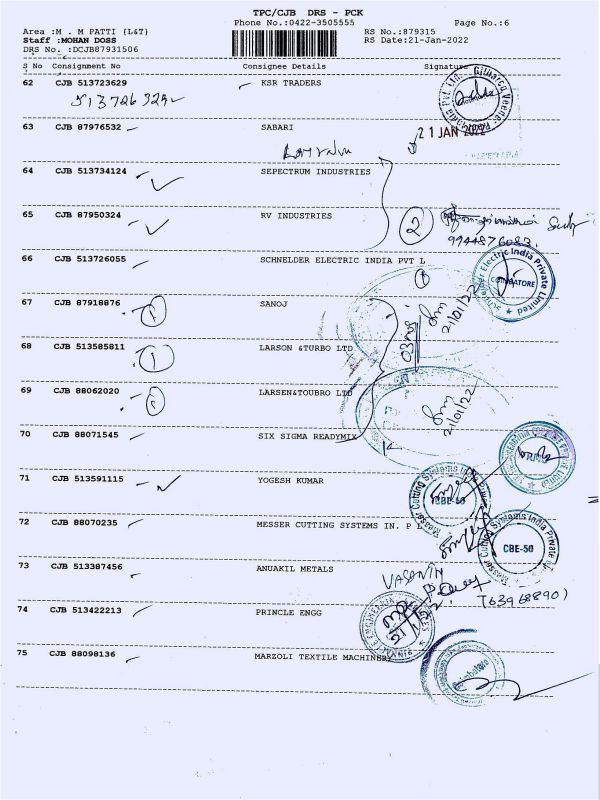 TPC/CJB DRS - PCK
Phone No.:0422-3505555 Page No.:6
Area :M . M PATTI (L&T) RS No.:879315
Staff :MOHAN DOSS RS Date:21-Jan-2022
DRS No. :DCJB87931506
S No Consignment No Consignee Details Signature
62 CJB 513723629 KSR TRADERS
513726329
63 CJB 87976532 SABARI
21 JAN 2022
64 CJB 513734124 SEPECTRUM INDUSTRIES
65 CJB 87950324 RV INDUSTRIES
2
9944876083.
66 CJB 513726055 SCHNELDER ELECTRIC INDIA PVT L
Schneider Electric India Private Limited
COIMBATORE
67 CJB 87918876 SANOJ
1
21/01/22
68 CJB 513585811 LARSON &TURBO LTD
1
69 CJB 88062020 LARSEN&TOUBRO LTD
21/01/22
70 CJB 88071545 SIX SIGMA READYMIX
71 CJB 513591115 YOGESH KUMAR
Messer Cutting Systems India Private
CBE-50
72 CJB 88070235 MESSER CUTTING SYSTEMS IN. P L
Messer Cutting Systems India Private
CBE-50
73 CJB 513387456 ANUAKIL METALS
VASANTH
(63968890)
74 CJB 513422213 PRINCLE ENGG
75 CJB 88098136 MARZOLI TEXTILE MACHINERY